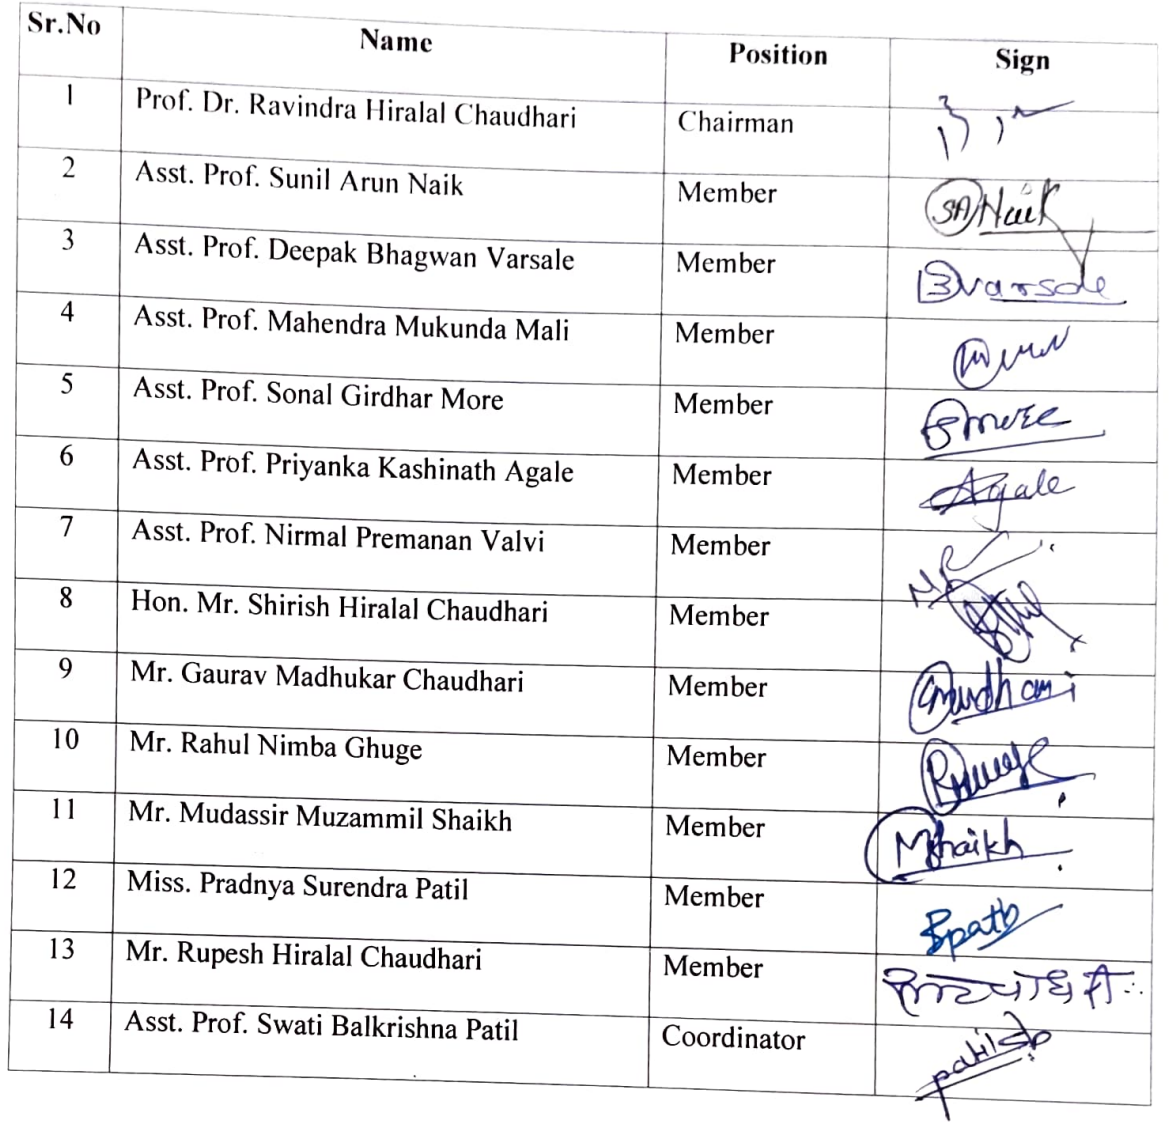 Sr.No Name Position Sign
1 Prof. Dr. Ravindra Hiralal Chaudhari Chairman
2 Asst. Prof. Sunil Arun Naik Member SA Naik
3 Asst. Prof. Deepak Bhagwan Varsale Member Bvarsale
4 Asst. Prof. Mahendra Mukunda Mali Member
5 Asst. Prof. Sonal Girdhar More Member Smore
6 Asst. Prof. Priyanka Kashinath Agale Member Agale
7 Asst. Prof. Nirmal Premanan Valvi Member
8 Hon. Mr. Shirish Hiralal Chaudhari Member
9 Mr. Gaurav Madhukar Chaudhari Member
10 Mr. Rahul Nimba Ghuge Member
11 Mr. Mudassir Muzammil Shaikh Member MShaikh
12 Miss. Pradnya Surendra Patil Member
13 Mr. Rupesh Hiralal Chaudhari Member
14 Asst. Prof. Swati Balkrishna Patil Coordinator